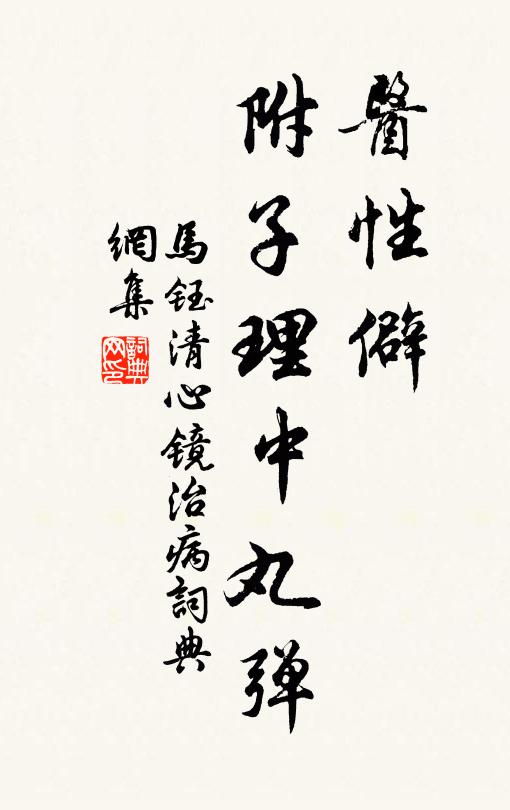 醫性僻
附子理中丸彈
馬鈺清心鏡治病詞典
網集
詞典
网印